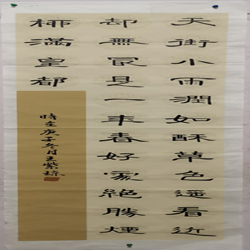 天街小雨潤如酥草色遥看近
却無最是一年春好處絕勝煙
柳滿皇都
時在庚子冬月王紫